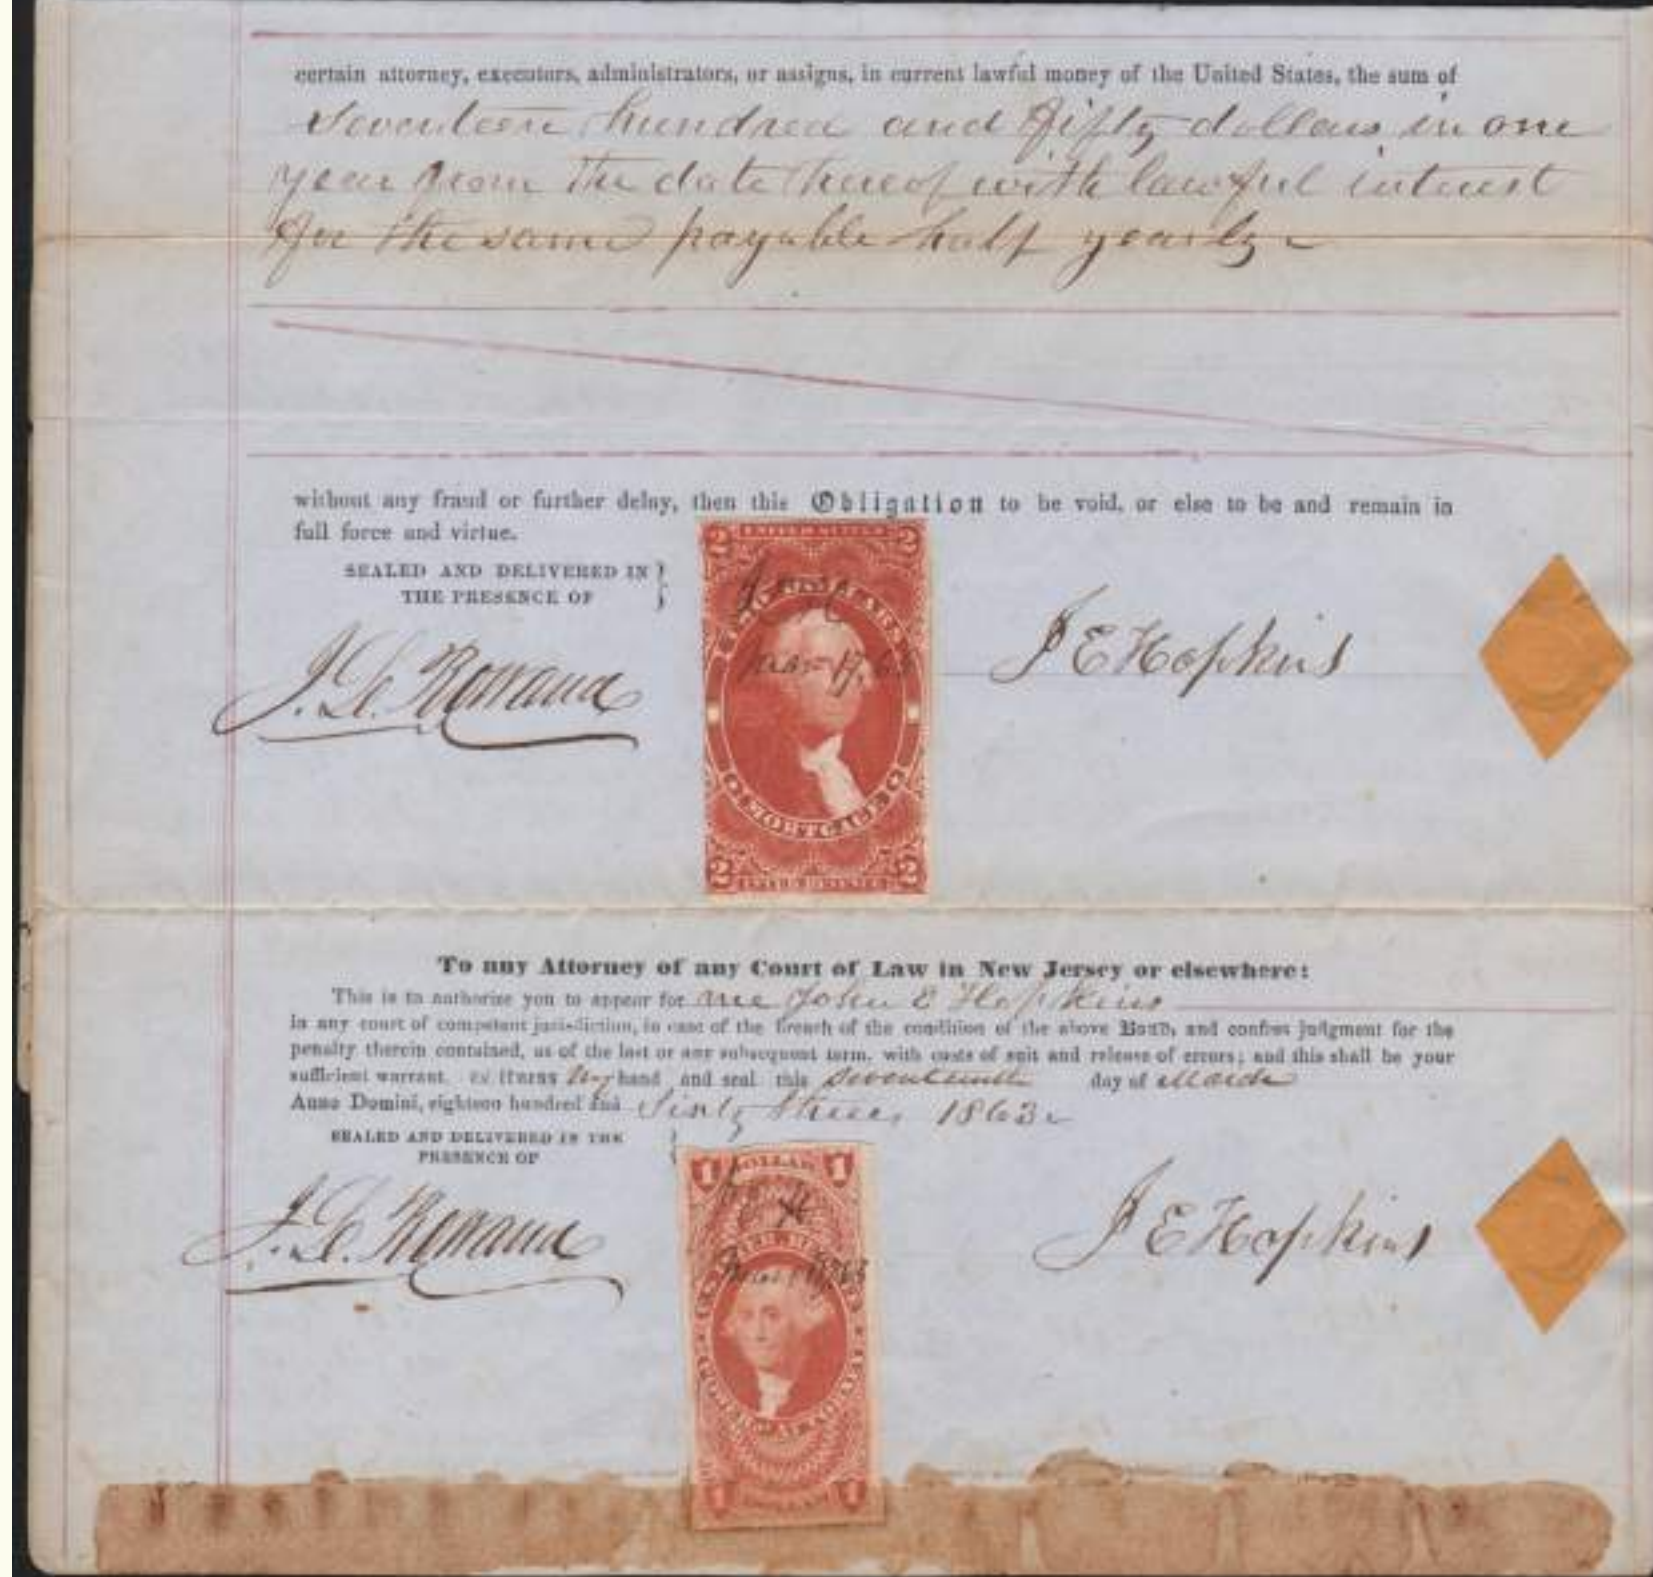 certain attorney, executors, administrators, or assigns, in current lawful money of the United States, the sum of
Seventeen hundred and fifty dollars in one
year from the date hereof with lawful interest
for the same payable half yearly
without any fraud or further delay, then this Obligation to be void, or else to be and remain in
full force and virtue.
SEALED AND DELIVERED IN }
THE PRESENCE OF }
2 UNITED STATES 2
TWO DOLLARS
Mar 17, 63
MORTGAGE
2 INTER. REVENUE 2
J E Hopkins
To any Attorney of any Court of Law in New Jersey or elsewhere:
This is to authorize you to appear for me John E Hopkins
in any court of competent jurisdiction, in case of the breach of the condition of the above Bond, and confess judgment for the
penalty therein contained, as of the last or any subsequent term, with costs of suit and release of errors; and this shall be your
sufficient warrant. Witness my hand and seal this Seventeenth day of March
Anno Domini, eighteen hundred and Sixty three, 1863
SEALED AND DELIVERED IN THE }
PRESENCE OF
1 DOLLAR 1
POWER OF ATTORNEY
1 DOLLAR 1
J E Hopkins